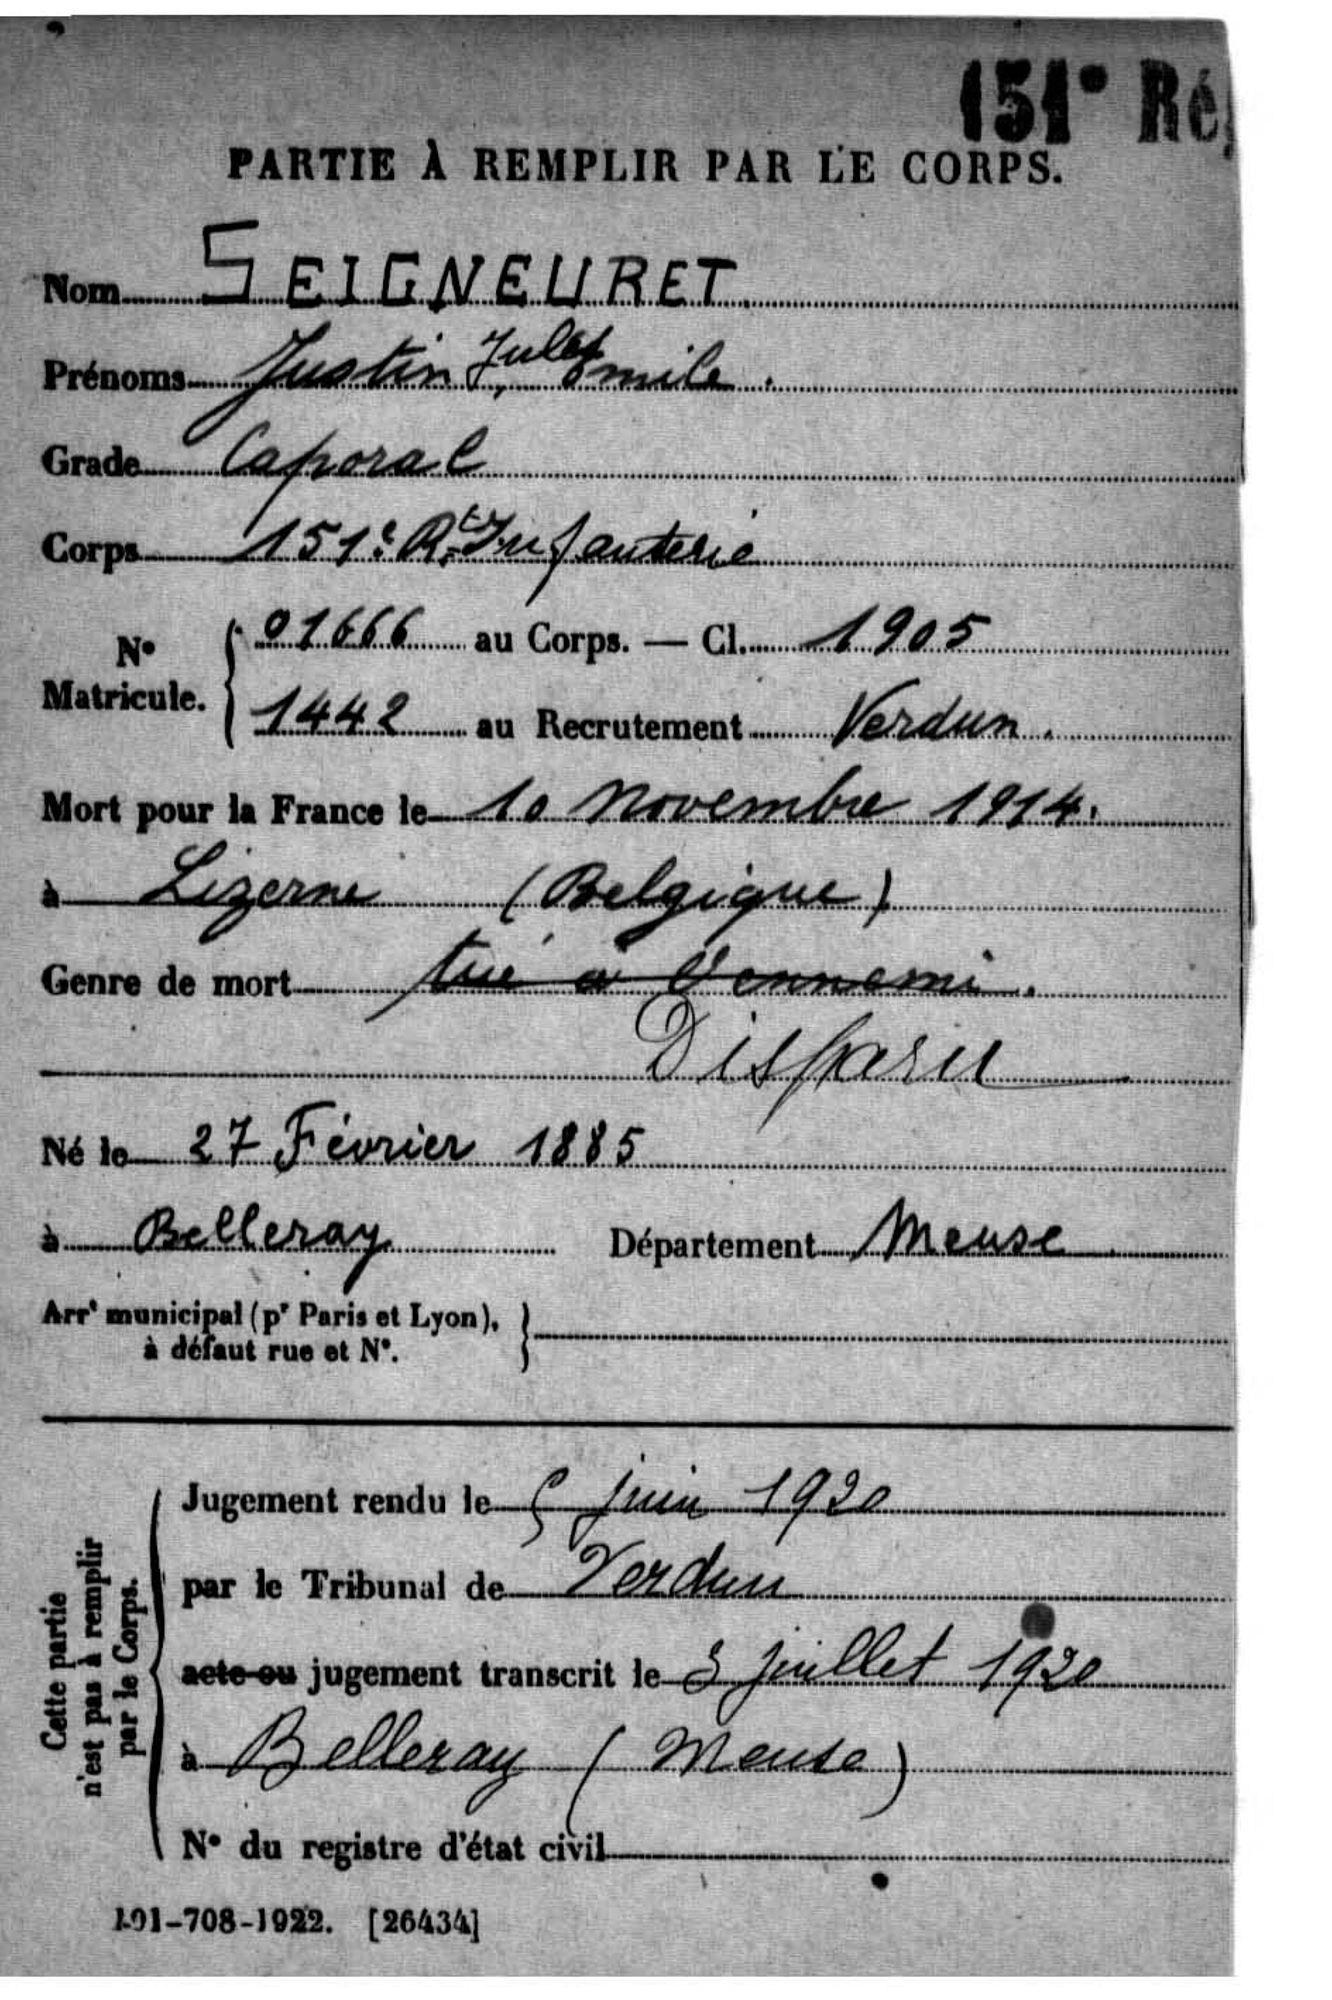 151e Ré
PARTIE À REMPLIR PAR LE CORPS.
Nom SEIGNEURET
Prénoms Justin Jules Emile.
Grade Caporal
Corps 151e Rt Infanterie
No Matricule. { 01666 au Corps. — Cl. 1905
1442 au Recrutement Verdun.
Mort pour la France le 10 Novembre 1914.
à Lizerne (Belgique)
Genre de mort tué à l'ennemi.
Disparu
Né le 27 Février 1885
à Belleray Département Meuse
Arrt municipal (pr Paris et Lyon), }
à défaut rue et No.
Cette partie
n'est pas à remplir
par le Corps.
Jugement rendu le 5 juin 1920
par le Tribunal de Verdun
acte ou jugement transcrit le 5 juillet 1920
à Belleray (Meuse)
No du registre d'état civil
101-708-1922. [26434]